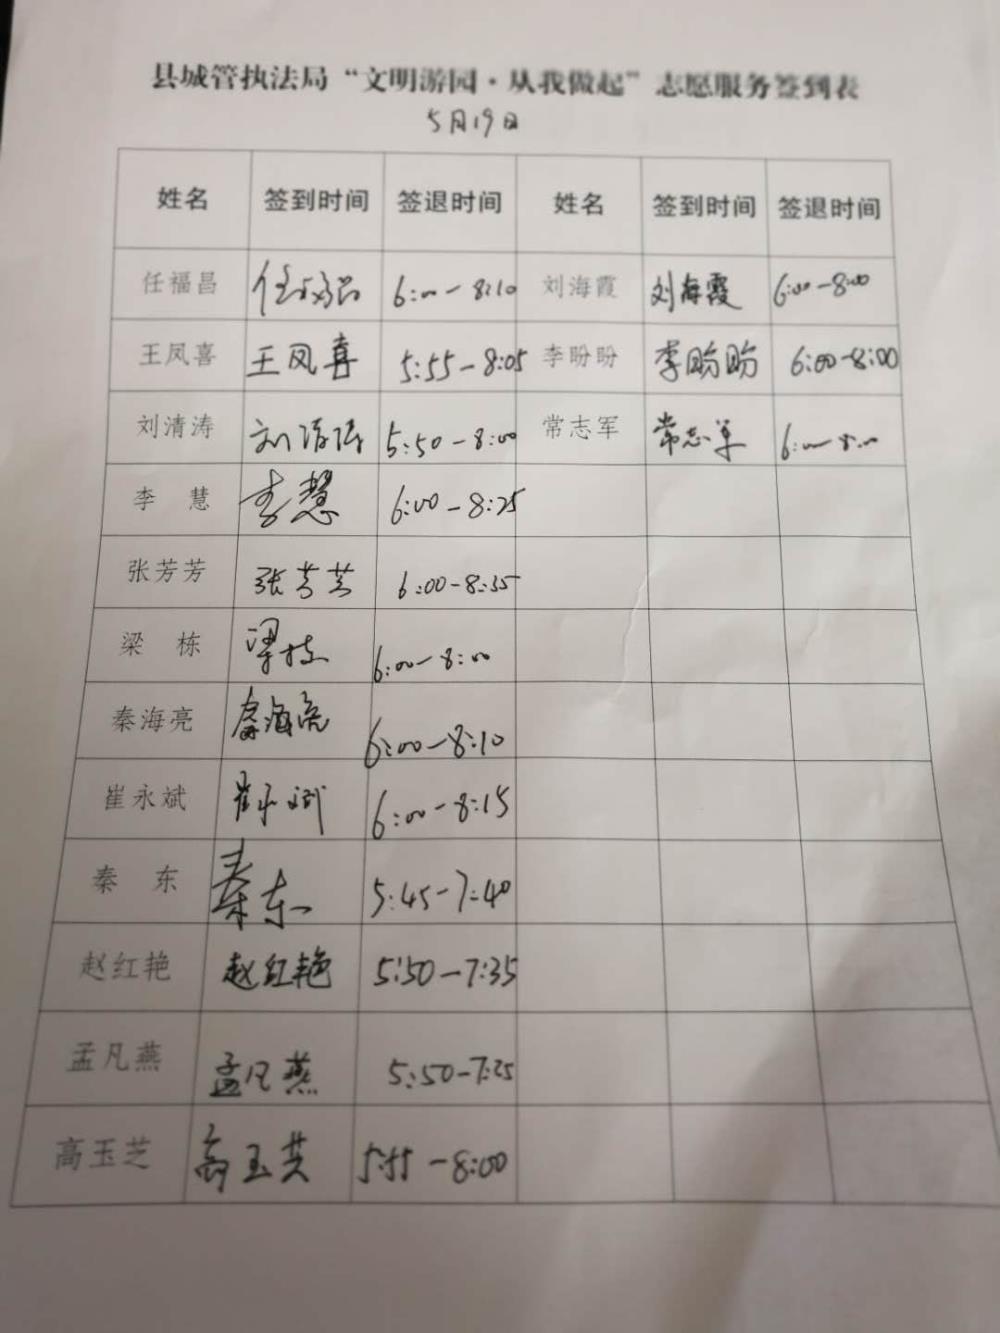 县城管执法局“文明游园·从我做起”志愿服务签到表
5月19日
姓名 签到时间 签退时间 姓名 签到时间 签退时间
任福昌 任福昌 6:00-8:10 刘海霞 刘海霞 6:00-8:00
王凤喜 王凤喜 5:55-8:05 李盼盼 李盼盼 6:00-8:00
刘清涛 刘清涛 5:50-8:00 常志军 常志军 6:00-8:00
李慧 李慧 6:00-8:25
张芳芳 张芳芳 6:00-8:35
梁栋 梁栋 6:00-8:00
秦海亮 秦海亮 6:00-8:10
崔永斌 崔永斌 6:00-8:15
秦东 秦东 5:45-7:40
赵红艳 赵红艳 5:50-7:35
孟凡燕 孟凡燕 5:50-7:25
高玉芝 高玉芝 5:55-8:00